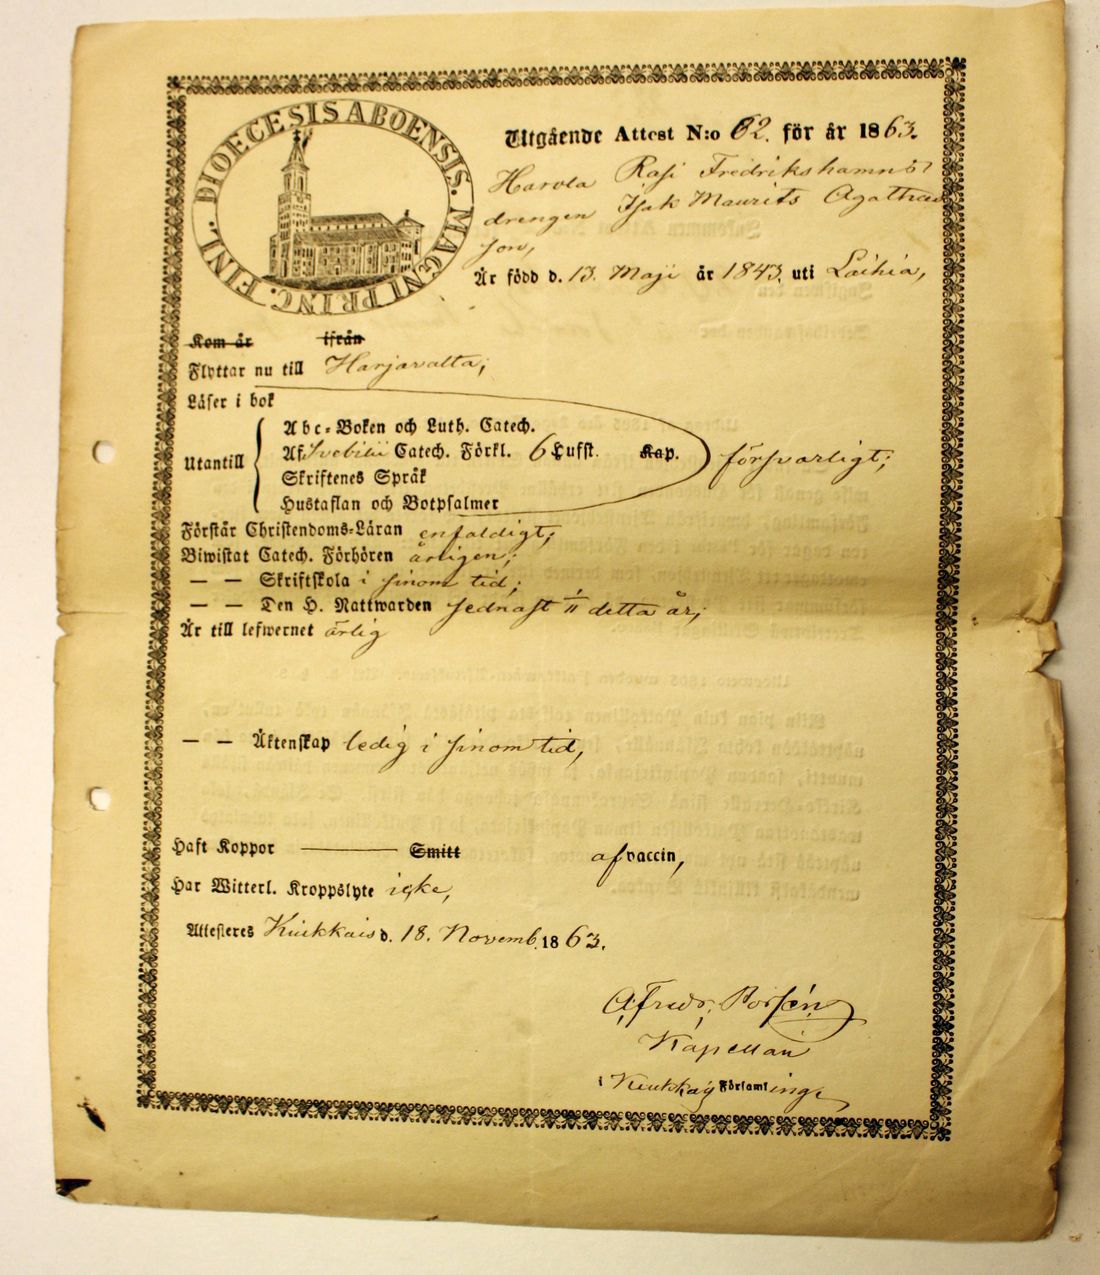 DIOECESIS ABOENSIS. MAGNI PRINC. FINL.
Utgående Attest N:o 62. för år 1863.
Harola Rasi Fredrikshamns
drengen Isak Maurits Agathas
son,
Är född d. 13. Maji år 1843. uti Laihia,
Kom år ifrån
Flyttar nu till Harjavalta;
Läser i bok
Abc-Boken och Luth. Catech.
Utantill Af Svebilii Catech. Förkl. 6 Hufst. Kap. försvarligt;
Skriftenes Språk
Hustaflan och Botpsalmer
Förstår Christendoms-Läran enfaldigt;
Biwistat Catech. Förhören årligen;
— — Skriftskola i sinom tid;
— — Den H. Nattwarden sednast 1/11 detta år;
Är till lefwernet ärlig
— — Äktenskap ledig i sinom tid,
Haft Koppor ——— Smitt af vaccin,
Har Witterl. Kroppslyte icke,
Attesteres Kiukkais d. 18. Novemb. 1863.
A. Fredr. Borsén
Kapellan
i Kiukkais Församlinge